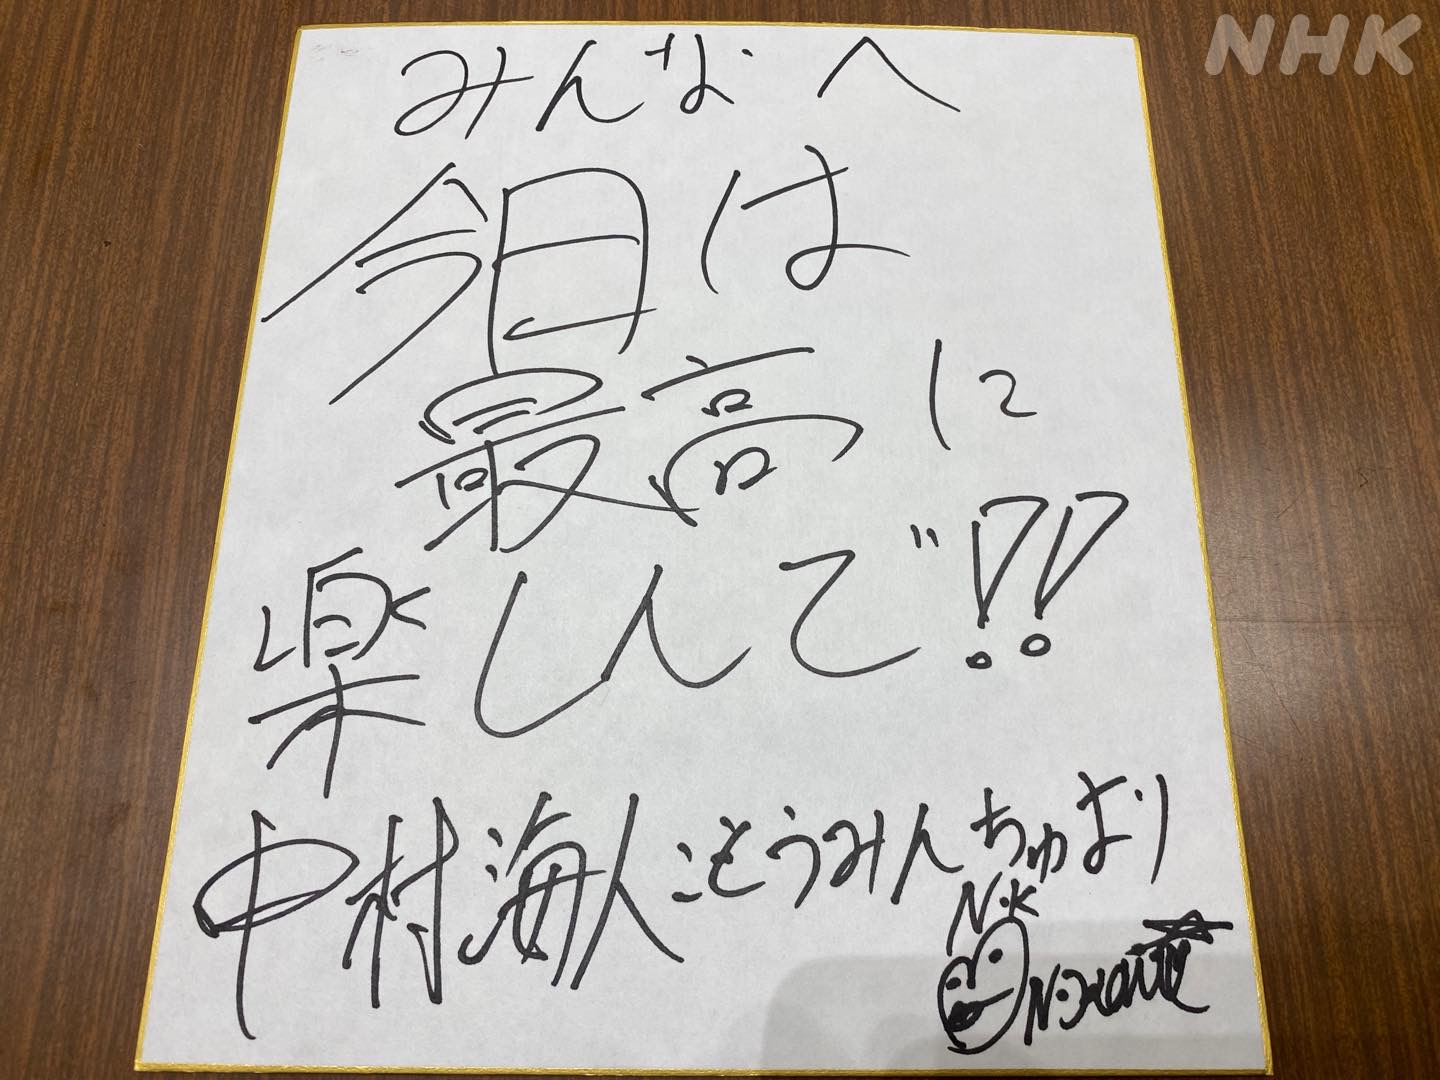 NHK
みんなへ
今日は
最高に
楽しんで!!
中村海人ことうみんちゅより
N.K